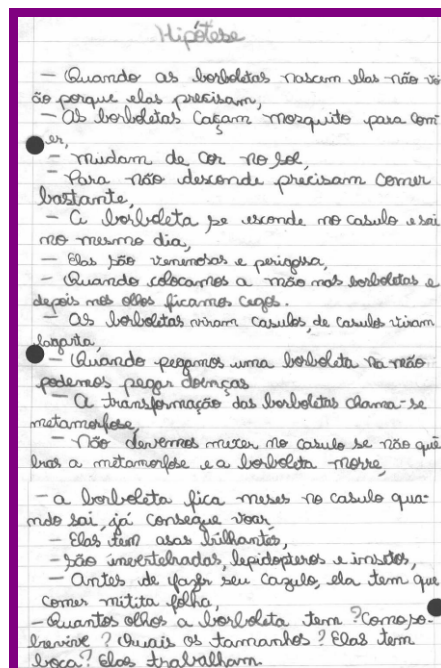 Hipótese
— Quando as borboletas nascem elas não vo
ão porque elas precisam,
— As borboletas caçam mozquito para com
er,
— mudam de cor no sol,
— Para não desconde precisam comer
bastante,
— A borboleta se esconde no casulo e sai
no mesmo dia,
— Elas são venenosas e perigossa,
— Quando colocamos a mão nas borboletas e
depois nos olhos ficamos cegos.
— As borboletas viram casulos, de casulos viram
lagarta,
— Quando pegamos uma borboleta na mão
podemos pegar doenças
— A transformação das borboletas chama-se
metamorfose,
— Não devemos mexer no casulo se não que
bras a metamorfose e a borboleta morre,
— a borboleta fica meses no casulo qua-
ndo sai, já consegue voar,
— Elas tem asas brilhantes,
— São invertebradas, lepidopteros e insetos,
— Antes de fazer seu cazulo, ela tem que
comer mitita folha,
— Quantos olhos a borboleta tem? Como so-
brevive? Quais os tamanhos? Elas tem
boca? Elas trabalham